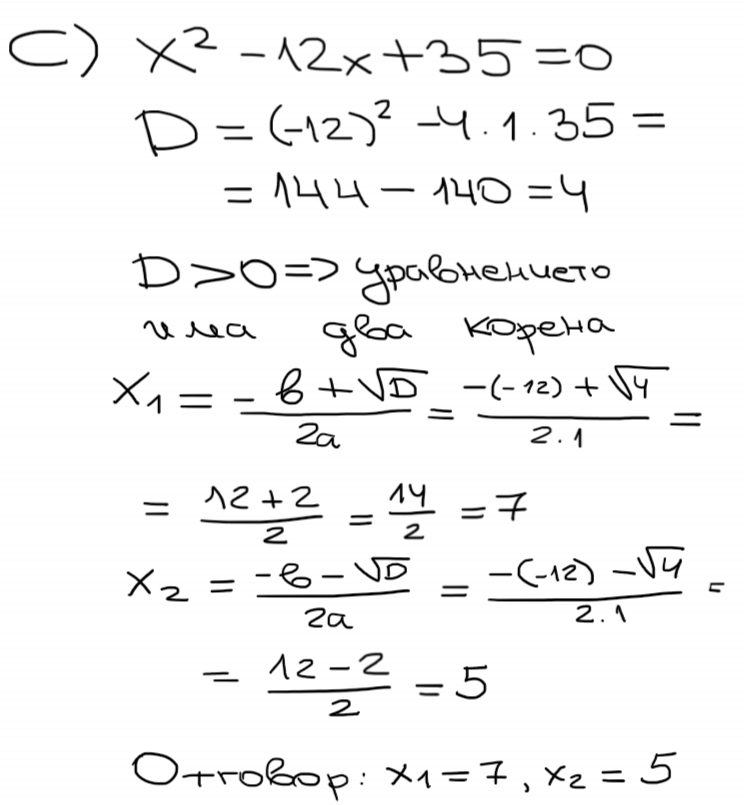 C) x² - 12x + 35 = 0
D = (-12)² - 4 . 1 . 35 =
= 144 - 140 = 4
D > 0 => уравнението
има два корена
x₁ = (-b + √D)/2a = (-(-12) + √4)/2.1 =
= (12 + 2)/2 = 14/2 = 7
x₂ = (-b - √D)/2a = (-(-12) - √4)/2.1 =
= (12 - 2)/2 = 5
Отговор: x₁ = 7, x₂ = 5